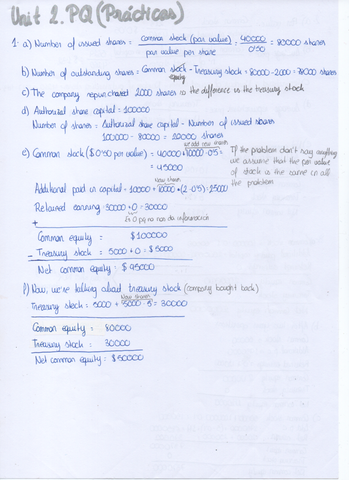 Unit 2. PQ (Prácticas)
1. a) Number of issued shares = common stock (par value) / par value per share = 40000 / 0'50 = 80000 shares
b) Number of outstanding shares = Common stock - Treasury stock = 80000 - 2000 = 78000 shares
equity
c) The company repurchased 2000 shares so the difference is the treasury stock
d) Authorized share capital = 100000
Number of shares = Authorized share capital - Number of issued shares
100000 - 80000 = 20000 shares
we add new shares
e) Common stock ($0'50 per value) = 40000 + 10000 · 0'5 =
= 45000
If the problem don't say anything
we assume that the par value
of stock is the same in all
the problem
New shares
Additional paid in capital = 10000 + 10000 · (2 - 0'5) = 25000
Retained earning = 30000 + 0 = 30000
+
Es 0 pq no nos da información
Common equity = $ 100000
- Treasury stock = 5000 + 0 = $ 5000
Net common equity = $ 95000
f) Now, we're talking about treasury stock (company bought back)
New shares
Treasury stock = 5000 + 5000 · 5 = 30000
Common equity = 80000
Treasury stock = 30000
Net common equity = $ 50000